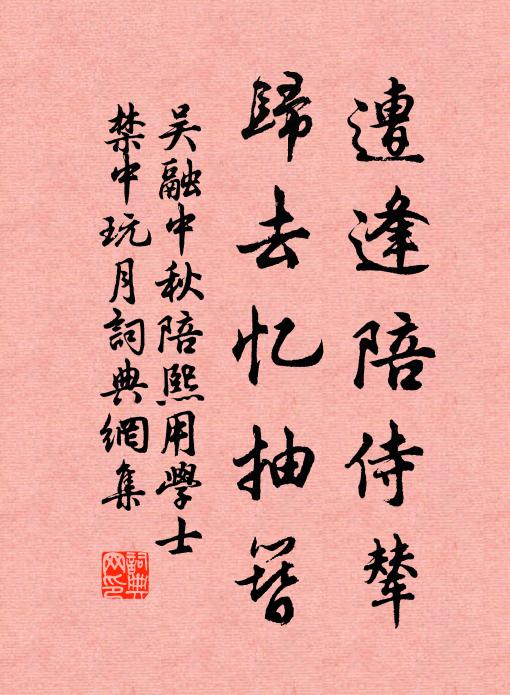 遭逢陪侍輦
歸去忆抽簪
吴融中秋陪熙用學士
禁中玩月詞典網集
詞典网印